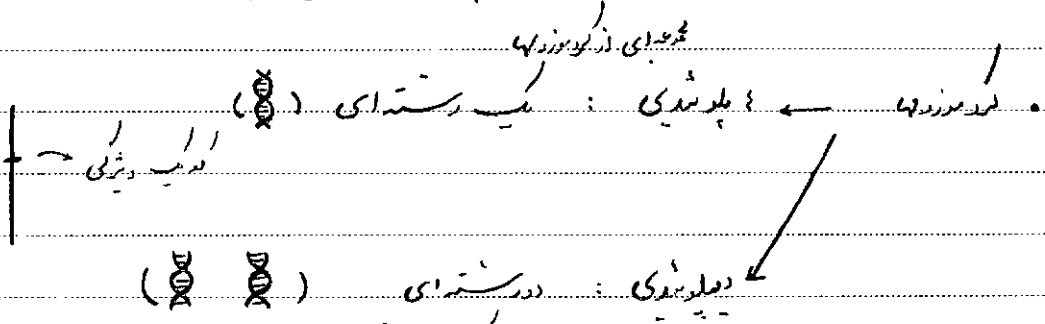 مجموعه‌ای از کروموزوم‌ها
• کروموزوم‌ها ← هاپلوئیدی : یک رشته‌ای ( )
کد یک ویژگی
دیپلوئیدی : دورشته‌ای ( )